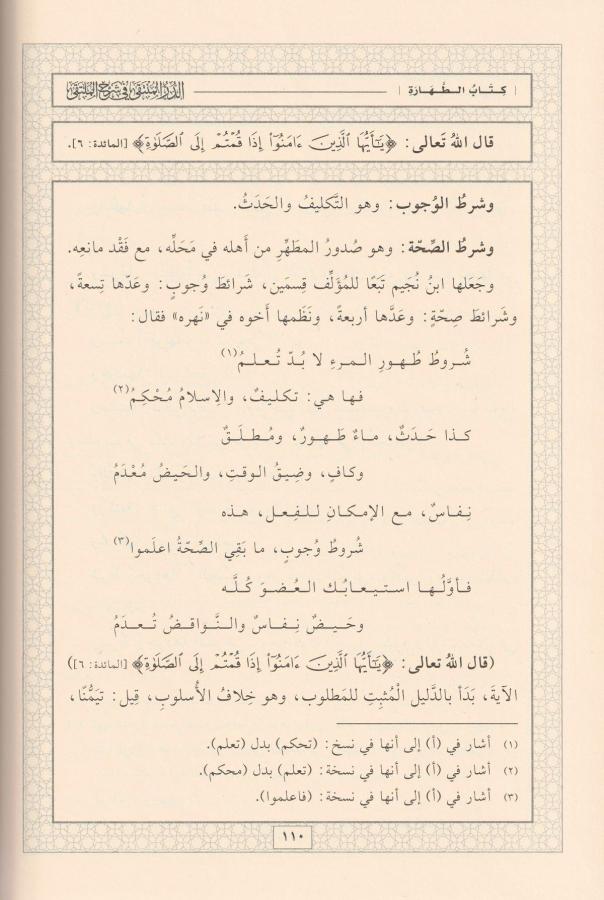 | كِتَابُ الطَّهَارَةِ | الدُّرُّ المُنْتَقَى فِي شَرْحِ المُلْتَقَى
قال اللهُ تَعالى: ﴿يَٰٓأَيُّهَا ٱلَّذِينَ ءَامَنُوٓاْ إِذَا قُمۡتُمۡ إِلَى ٱلصَّلَوٰةِ﴾ [المائدة: ٦].
وشرطُ الوُجوب: وهو التَّكليفُ والحَدَثُ.
وشرطُ الصِّحّة: وهو صُدورُ المطَهِّرِ من أَهله في مَحَلِّه، مع فَقْد مانعِه.
وجَعَلها ابنُ نُجَيم تَبَعًا للمُؤَلِّف قِسمَين، شَرائطَ وُجوبٍ: وعَدّها تِسعةً،
وشَرائطَ صِحّةٍ: وعَدَّها أربعةً، ونَظَمها أَخوه في «نَهره» فقال:
شُروطُ طُهورِ المرءِ لا بُدّ تُعلمُ(١)
فها هي: تكليفٌ، والإسلامُ مُحْكِمُ(٢)
كذا حَدَثٌ، ماءٌ طَهورٌ، ومُطلَقٌ
وكافٍ، وضِيقُ الوقتِ، والحَيضُ مُعْدَمُ
نِفاسٌ، مع الإمكانِ للفِعل، هذه
شُروطُ وُجوبٍ، ما بَقِي الصِّحّةُ اعلَموا(٣)
فأوَّلُها استيعابُك العُضوَ كُلَّه
وحَيضٌ نِفاسٌ والنَّواقضُ تُعدَمُ
(قال اللهُ تعالى: ﴿يَٰٓأَيُّهَا ٱلَّذِينَ ءَامَنُوٓاْ إِذَا قُمۡتُمۡ إِلَى ٱلصَّلَوٰةِ﴾ [المائدة: ٦])
الآيةَ، بَدَأ بالدَّليل الْمُثبِتِ للمَطلوب، وهو خِلافُ الأُسلوبِ، قِيل: تيَمُّنًا،
(١) أشار في (أ) إلى أنها في نسخ: (تحكم) بدل (تعلم).
(٢) أشار في (أ) إلى أنها في نسخة: (تعلم) بدل (محكم).
(٣) أشار في (أ) إلى أنها في نسخة: (فاعلموا).
١١٠